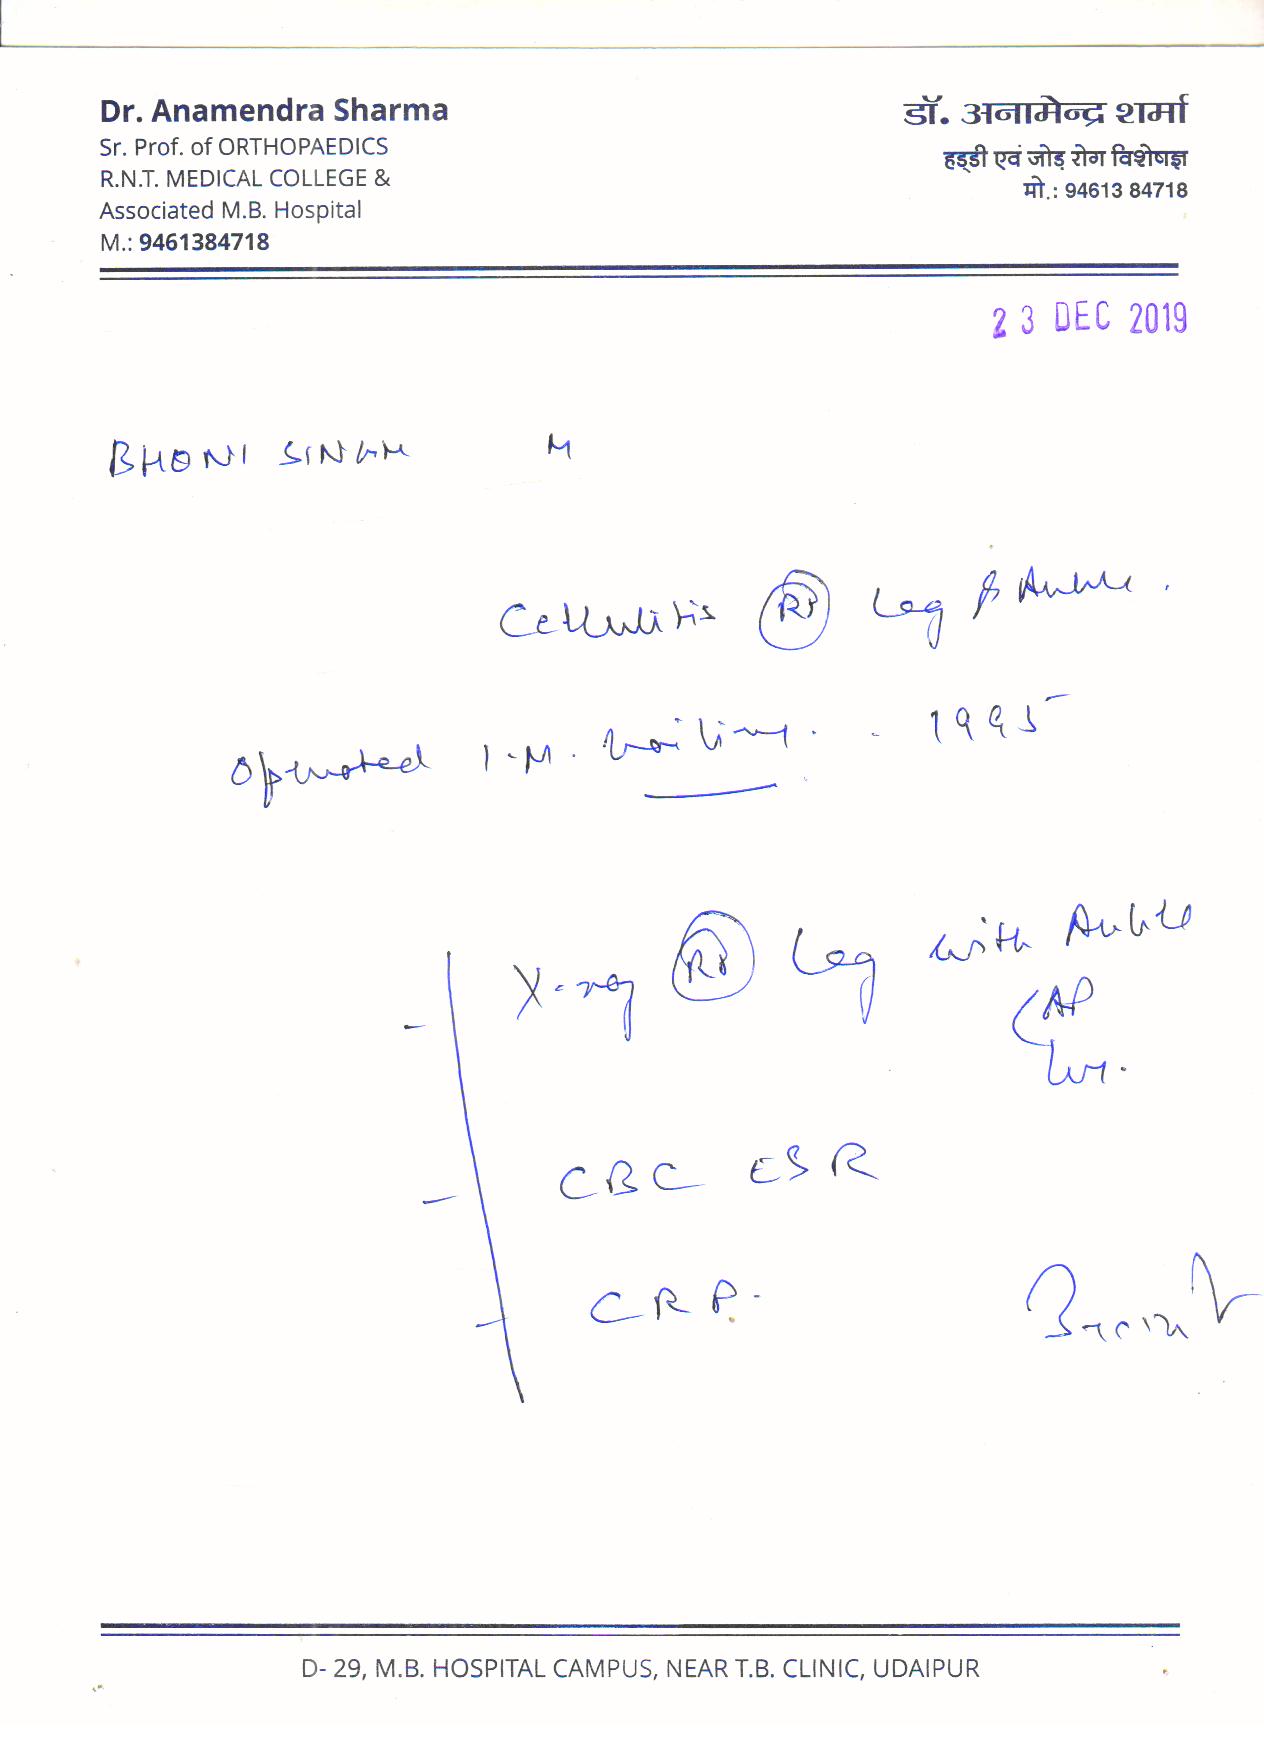 Dr. Anamendra Sharma
Sr. Prof. of ORTHOPAEDICS
R.N.T. MEDICAL COLLEGE &
Associated M.B. Hospital
M.: 9461384718
डॉ. अनामेन्द्र शर्मा
हड्डी एवं जोड़ रोग विशेषज्ञ
मो.: 94613 84718
23 DEC 2019
BHONI SINGH M
Cellulitis Rt Leg & Ankle.
Operated I.M. Nailing. - 1995
- X-ray Rt Leg with Ankle
AP
- CBC ESR
- CRP.
D- 29, M.B. HOSPITAL CAMPUS, NEAR T.B. CLINIC, UDAIPUR